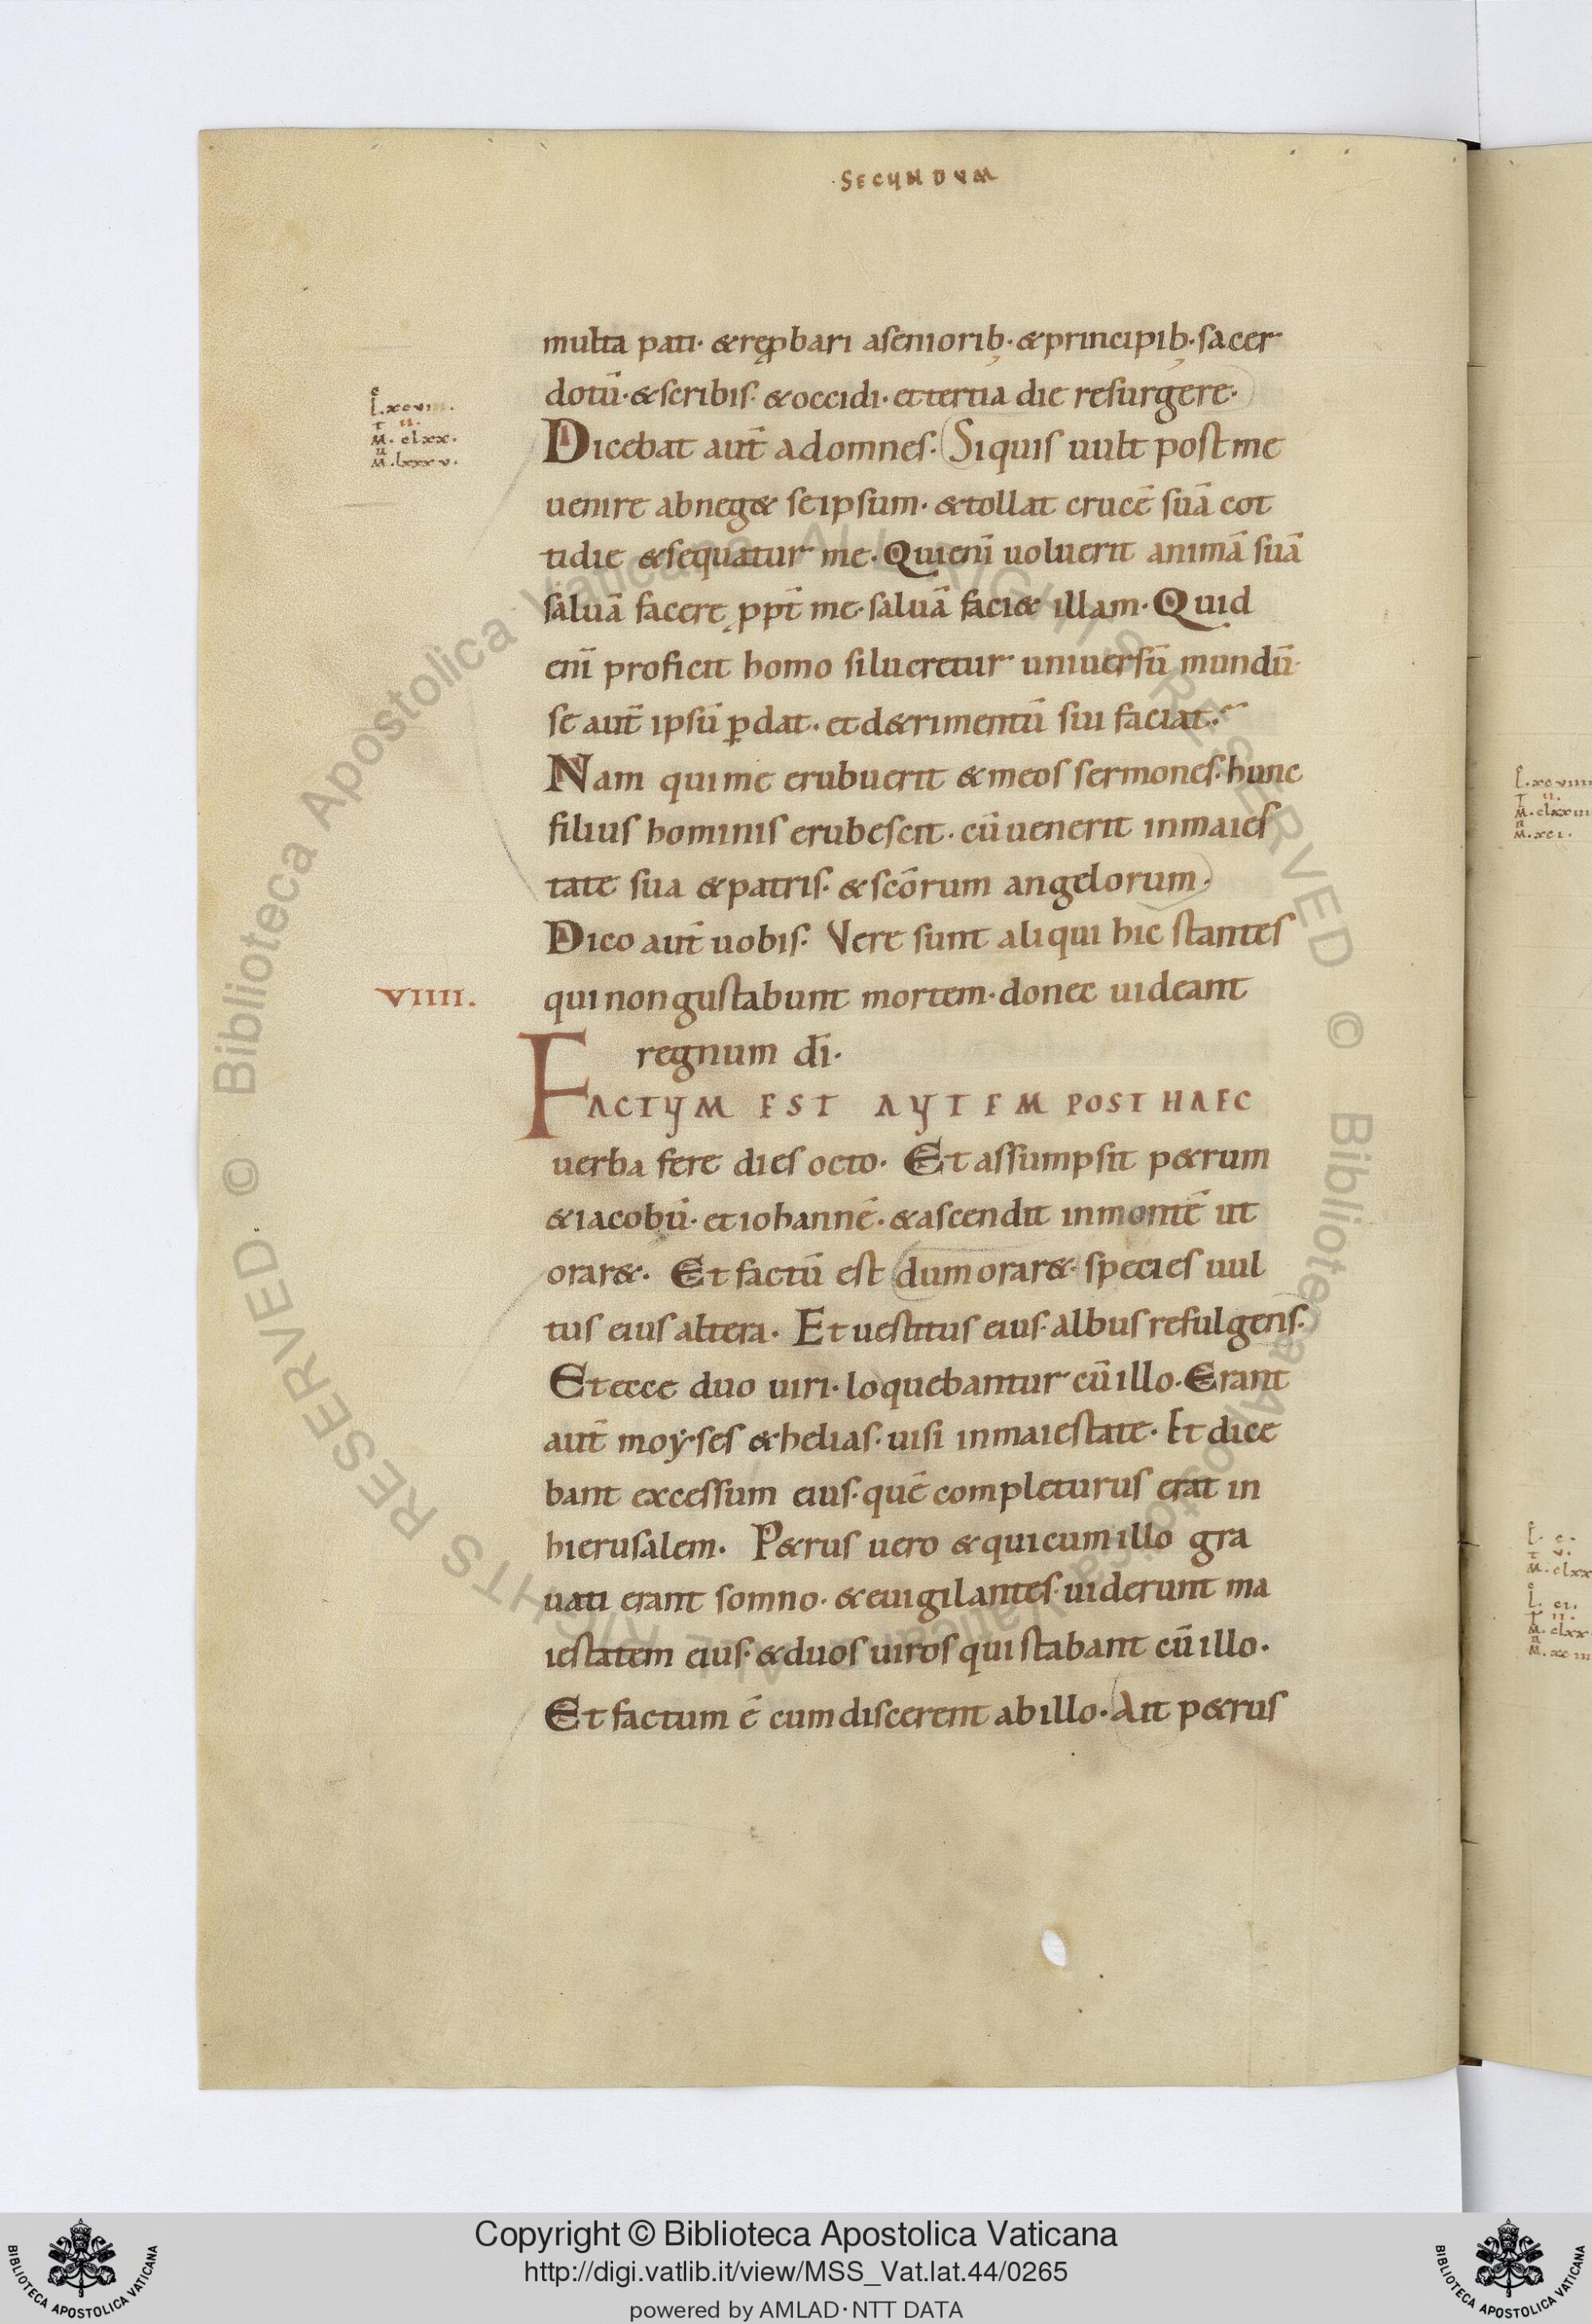 SECUNDUM
multa pati· & reꝓbari a seniorib;· & principib;· sacer
dotū· & scribis· & occidi· et tertia die resurgere·
Dicebat aut̄ ad omnes· Si quis uult post me
uenire abneg& se ipsum· & tollat crucē suā cot
tidie & sequatur me· Qui enī uoluerit animā suā
saluā facere ꝓpt̄ me· saluā faci& illam· Quid
enī proficit homo si lueretur uniuersū mundū·
se aut̄ ipsū ꝑdat· et d&rimentū sui faciat·
Nam qui me erubuerit & meos sermones· hunc
filius hominis erubescit· cū uenerit in maies
tate sua & patris· & scōrum angelorum·
Dico aut̄ uobis· Vere sunt aliqui hic stantes
qui non gustabunt mortem· donec uideant
regnum dī·
VIIII.
FACTUM EST AUTEM POST HAEC
uerba fere dies octo· Et assumpsit p&rum
& iacobū· et iohannē· & ascendit in montē ut
orar&· Et factū est dum orar&· species uul
tus eius altera· Et uestitus eius· albus refulgens·
Et ecce duo uiri· loquebantur cū illo· Erant
aut̄ moyses & helias· uisi in maiestate· Et dice
bant excessum eius· quē completurus erat in
hierusalem· P&rus uero & qui cum illo gra
uati erant somno· & euigilantes· uiderunt ma
iestatem eius· & duos uiros qui stabant cū illo·
Et factum ē cum discerent ab illo· Ait p&rus
L. xcviii.
T. ii.
M. clxx.
M. lxxxv.
L. xcviiii
T. ii.
M. clxxiii
M. xci.
L. c.
T. v.
M. clxx
L. ci.
T. ii.
M. clxx
M. xciii
© Biblioteca Apostolica Vaticana ALL RIGHTS RESERVED © Biblioteca Apostolica Vaticana ALL RIGHTS RESERVED
BIBLIOTECA APOSTOLICA VATICANA
Copyright © Biblioteca Apostolica Vaticana
http://digi.vatlib.it/view/MSS_Vat.lat.44/0265
powered by AMLAD·NTT DATA
BIBLIOTECA APOSTOLICA VATICANA